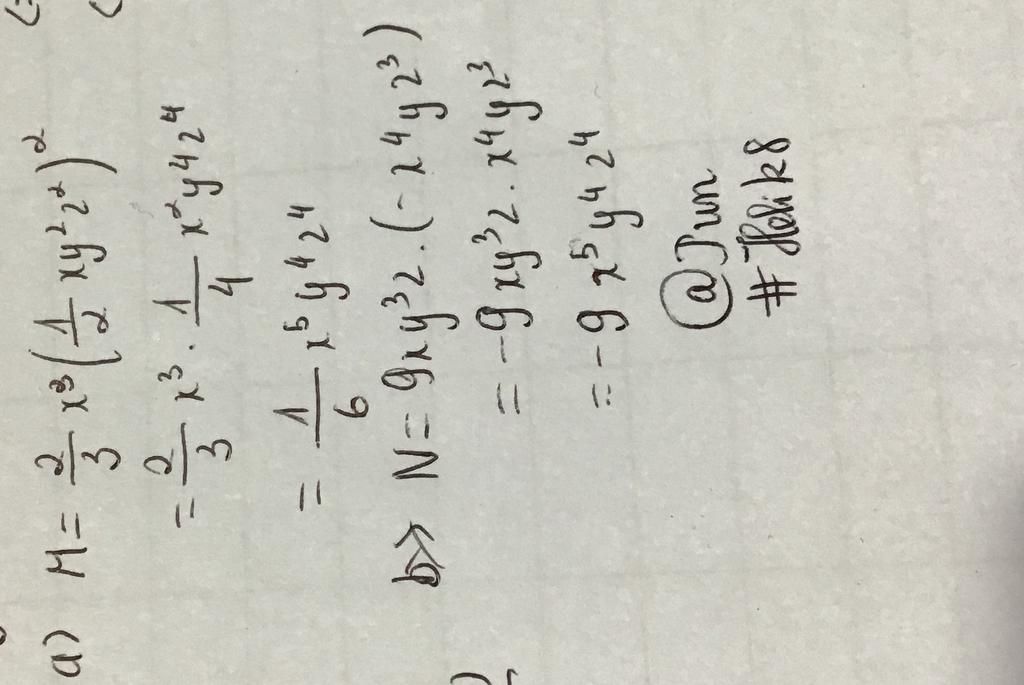 a) M = 2/3 x³ (1/2 xy²z²)²
= 2/3 x³ . 1/4 x²y⁴z⁴
= 1/6 x⁵y⁴z⁴
b) N = 9xy³z . (-x⁴yz³)
= -9xy³z . x⁴yz³
= -9x⁵y⁴z⁴
@Jun